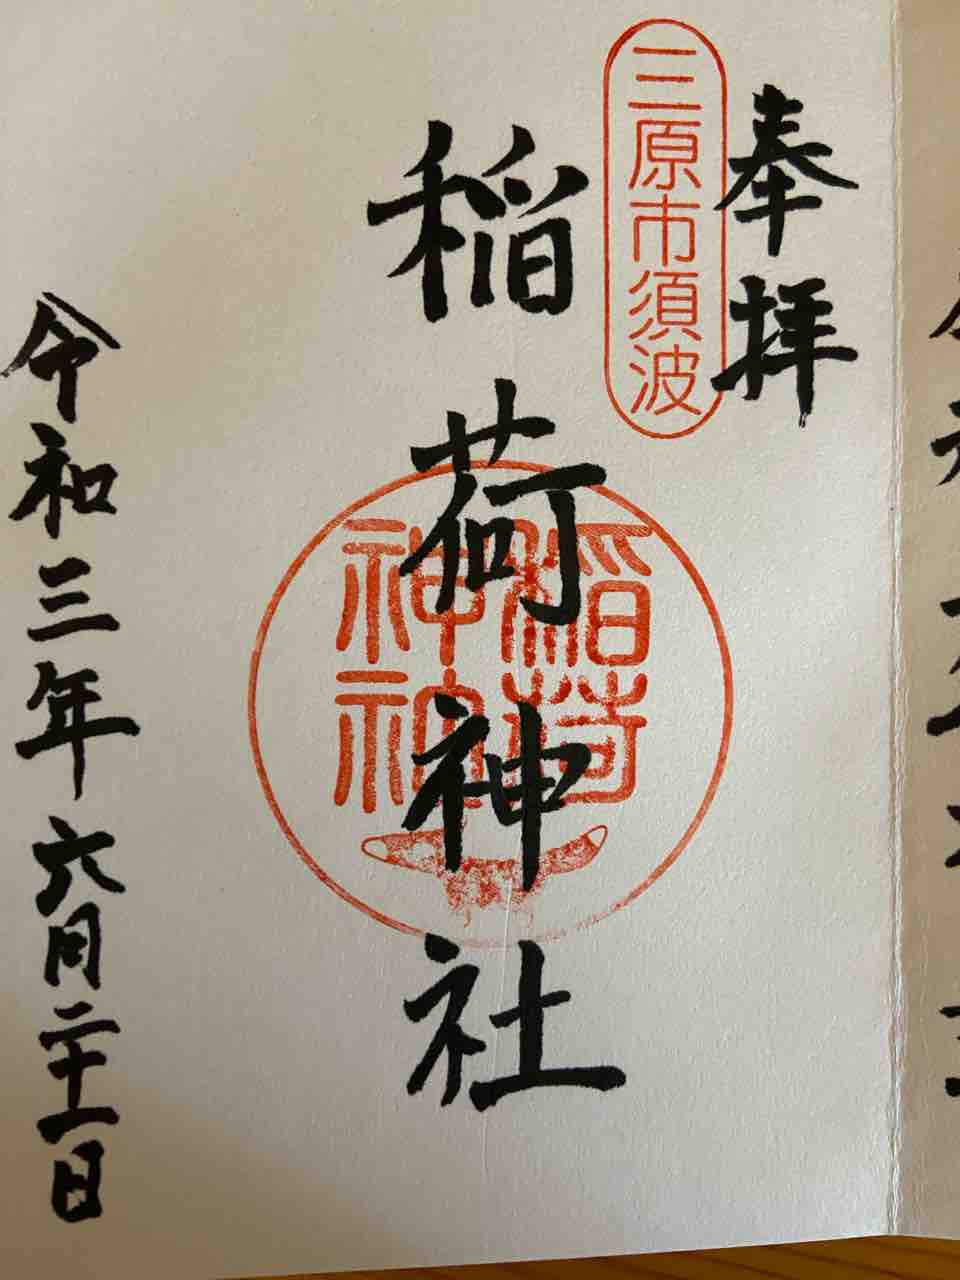 奉拝
三原市須波
稲荷神社
稲荷
神
令和三年六月二十一日